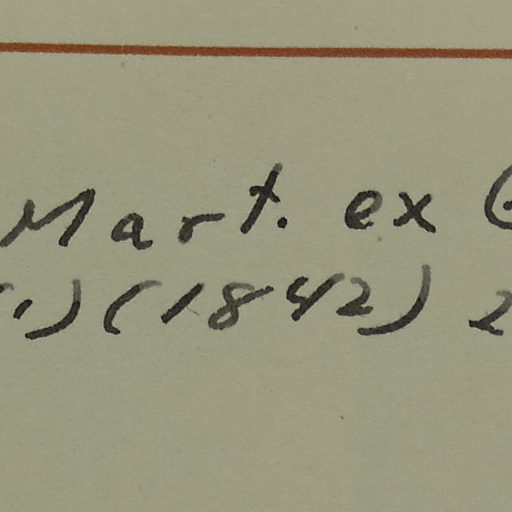 Mart. ex
(1842) 2